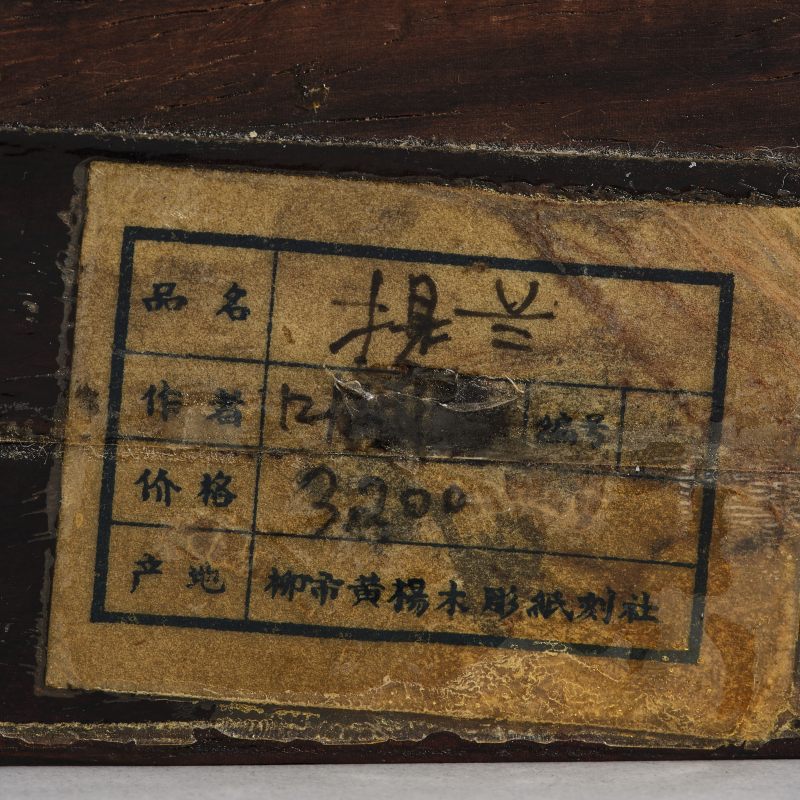 品名
作者 编号
价格 3200
产地 柳市黄楊木彫紙刻社